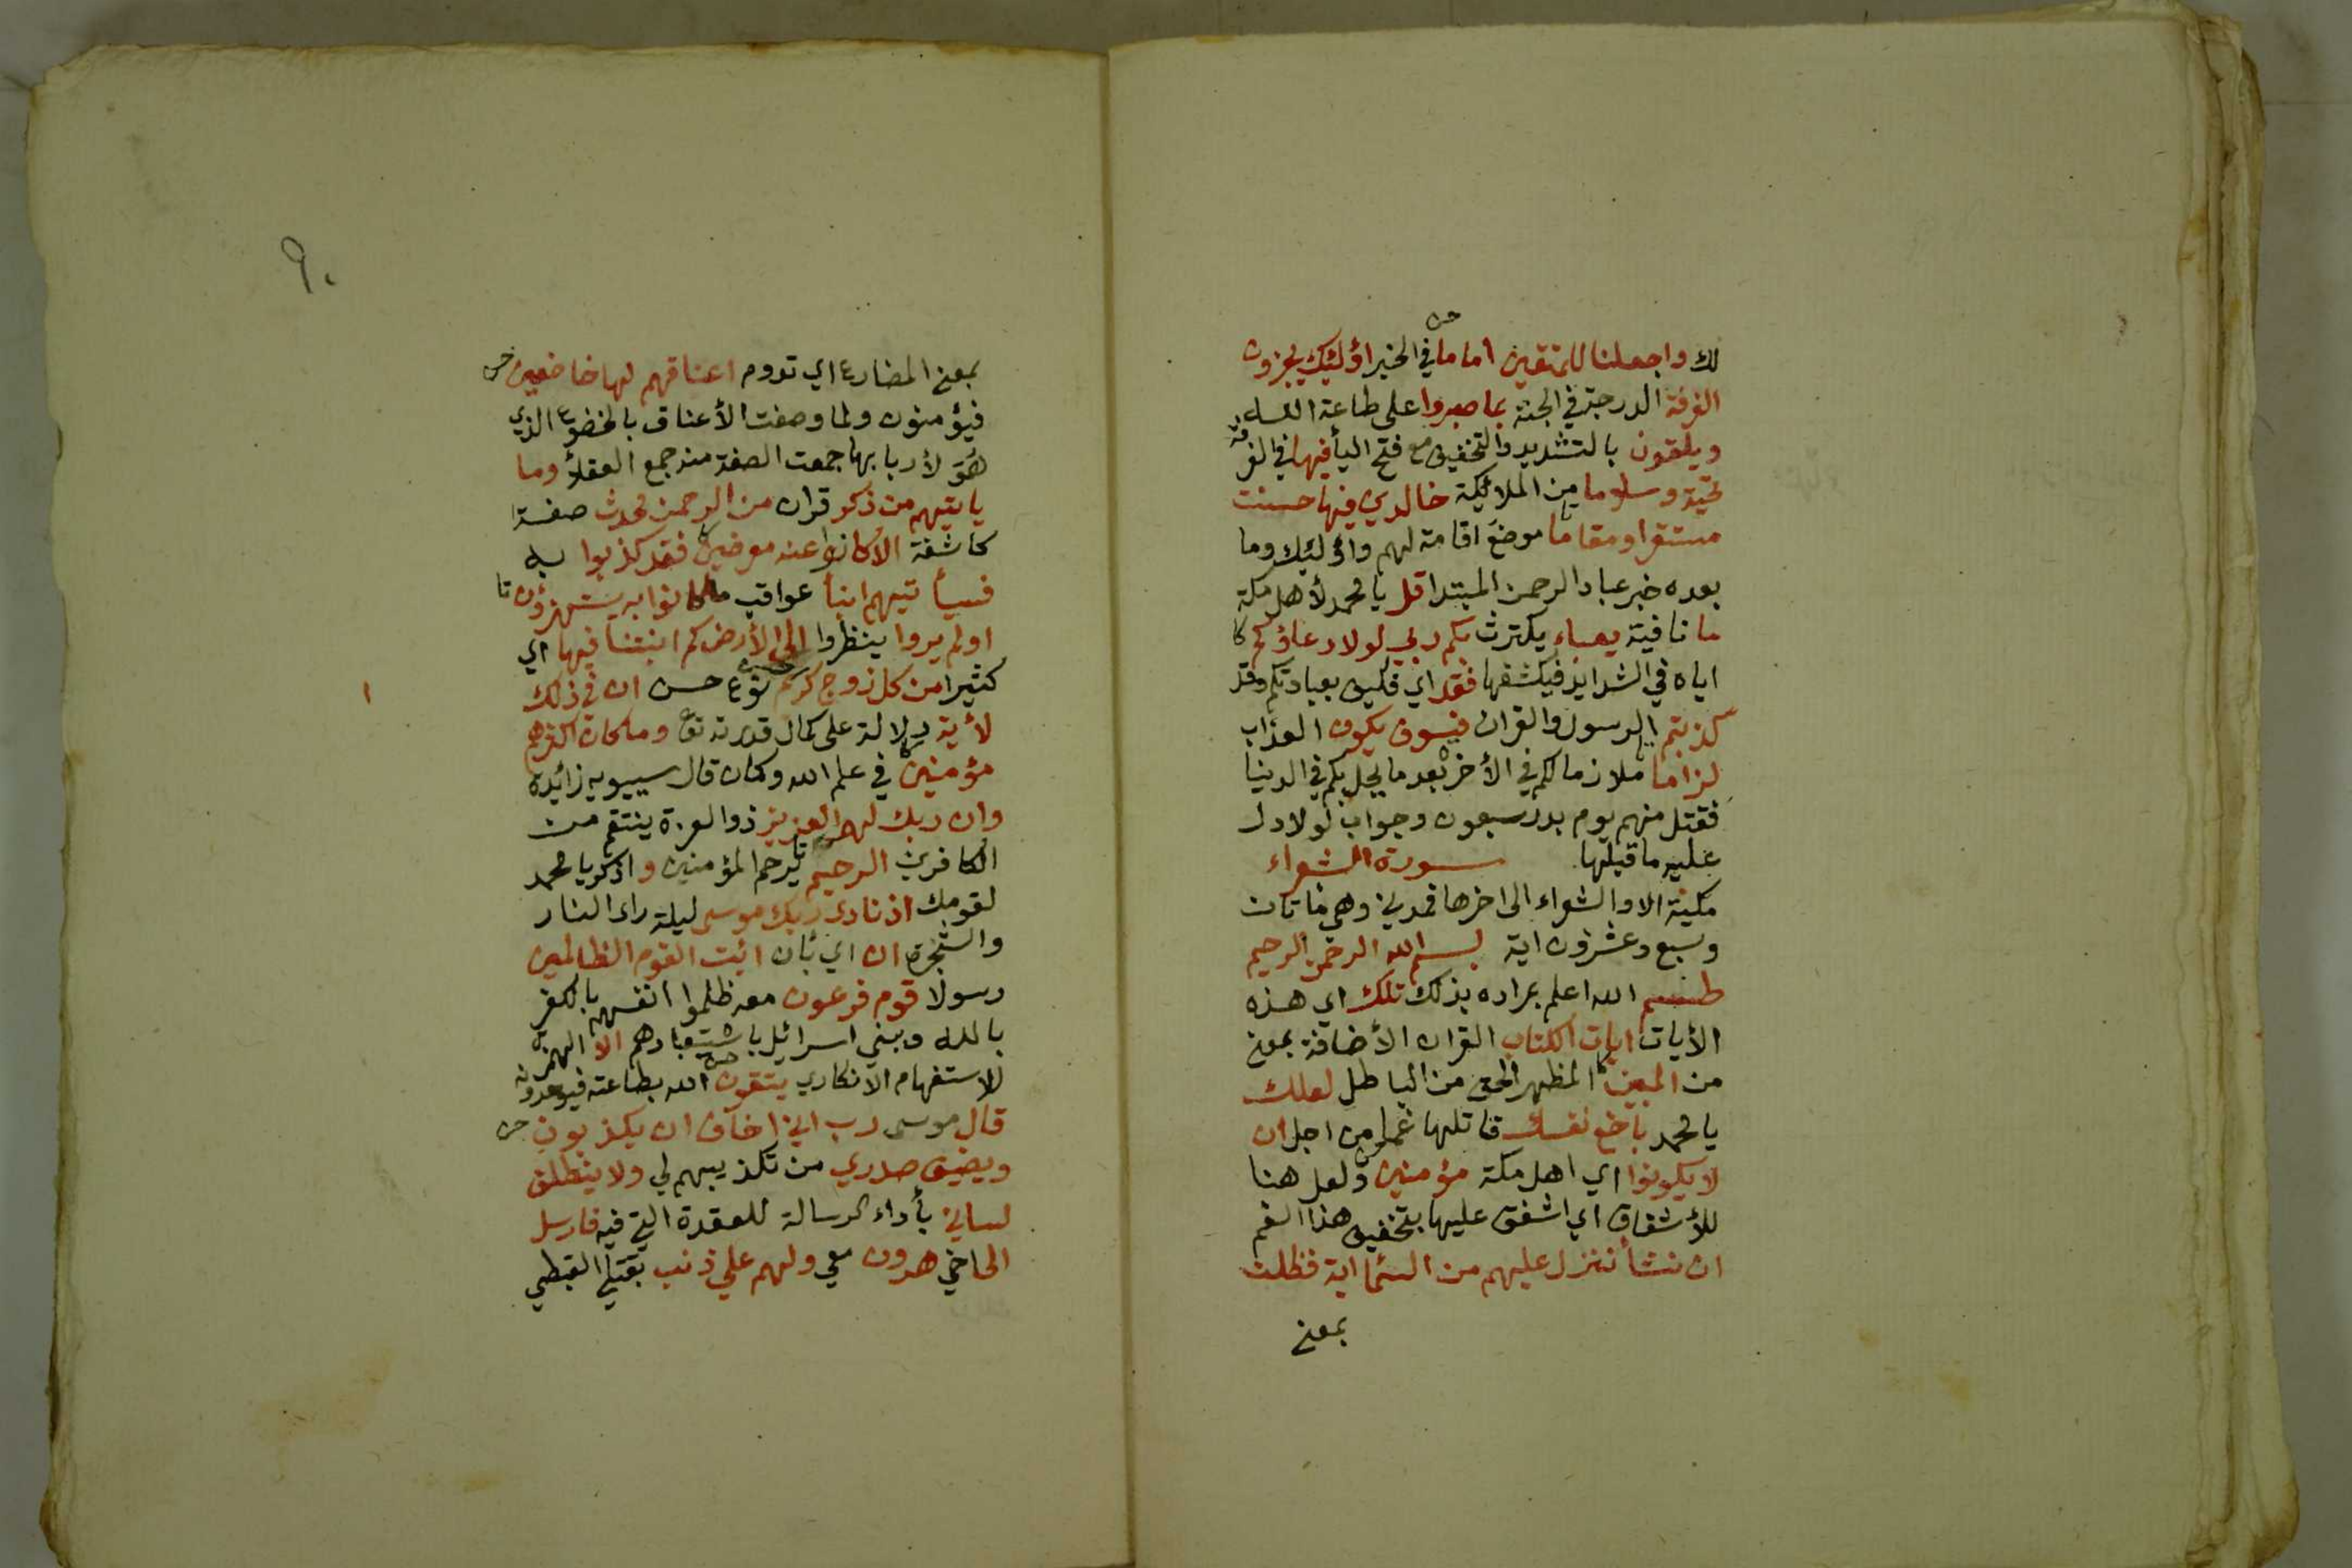 لك واجعلنا للمتقين اماما في الخير اؤلئك يجزون
الغرفة الدرجة في الجنة بما صبروا على طاعة الله
ويلقون بالتشديد والتخفيف مع فتح اليأ فيها في الغرفة
تحية وسلاما من الملائكة خالدين فيها حسنت
مستقرا ومقاما موضع اقامة لهم واؤلئك وما
بعده خبر عباد الرحمن المبتدا قل يا محمد لأهل مكة
ما نافية يعباء يكترث بكم ربي لولا دعاؤكم
اياه في الشدايد فيكشفها فقد اي فكيف يعبا بكم وقد
كذبتم الرسول والقران فسوف يكون العذاب
لزاما ملازما لكم في الأخرة بعد ما يحل بكم في الدنيا
فقتل منهم يوم بدر سبعون وجواب لولا دل
عليه ما قبلها سورة الشعراء
مكية الا والشعراء الى اخرها فمدني وهي مائتان
وسبع وعشرون اية بسم الله الرحمن الرحيم
طسم الله اعلم بمراده بذلك تلك اي هذه
الأيات ايات الكتاب القران الأضافة بمعنى
من المبين المظهر الحق من الباطل لعلك
يا محمد باخع نفسك قاتلها غما من اجل ان
لا يكونوا اي اهل مكة مؤمنين ولعل هنا
للأشفاق اي اشفق عليها بتخفيف هذا الغم
ان نشأ ننزل عليهم من السماء اية فظلت
بمعنى
٩٠
بمعنى المضارع اي تدوم اعناقهم لها خاضعين
فيؤمنون ولما وصفت الأعناق بالخضوع الذي
هو لأربابها جمعت الصفة منه جمع العقلأ وما
يأتيهم من ذكر قران من الرحمن محدث صفة
كاشفة الا كانوا عنه معرضين فقد كذبوا به
فسيأتيهم انبأ عواقب ما كانوا به يستهزؤن
اولم يروا ينظروا الى الأرض كم انبتنا فيها اي
كثيرا من كل زوج كريم نوع حسن ان في ذلك
لأية دلالة على كمال قدرته تع وما كان اكثرهم
مؤمنين في علم الله وكان قال سيبويه زائدة
وان ربك لهو العزيز ذو العزة ينتقم من
الكافرين الرحيم يرحم المؤمنين واذكر يا محمد
لقومك اذ نادى ربك موسى ليلة راى النار
والشجرة ان اي بأن ائت القوم الظالمين
رسولا قوم فرعون معه ظلموا انفسهم بالكفر
بالله وبني اسرائيل باستعبادهم الا الهمزة
للاستفهام الانكاري يتقون الله بطاعته فيوحدونه
قال موسى رب اني اخاف ان يكذبون
ويضيق صدري من تكذيبهم لي ولا ينطلق
لساني بأداء الرسالة للعقدة التي فيه فارسل
الى اخي هرون معي ولهم علي ذنب بقتل القبطي